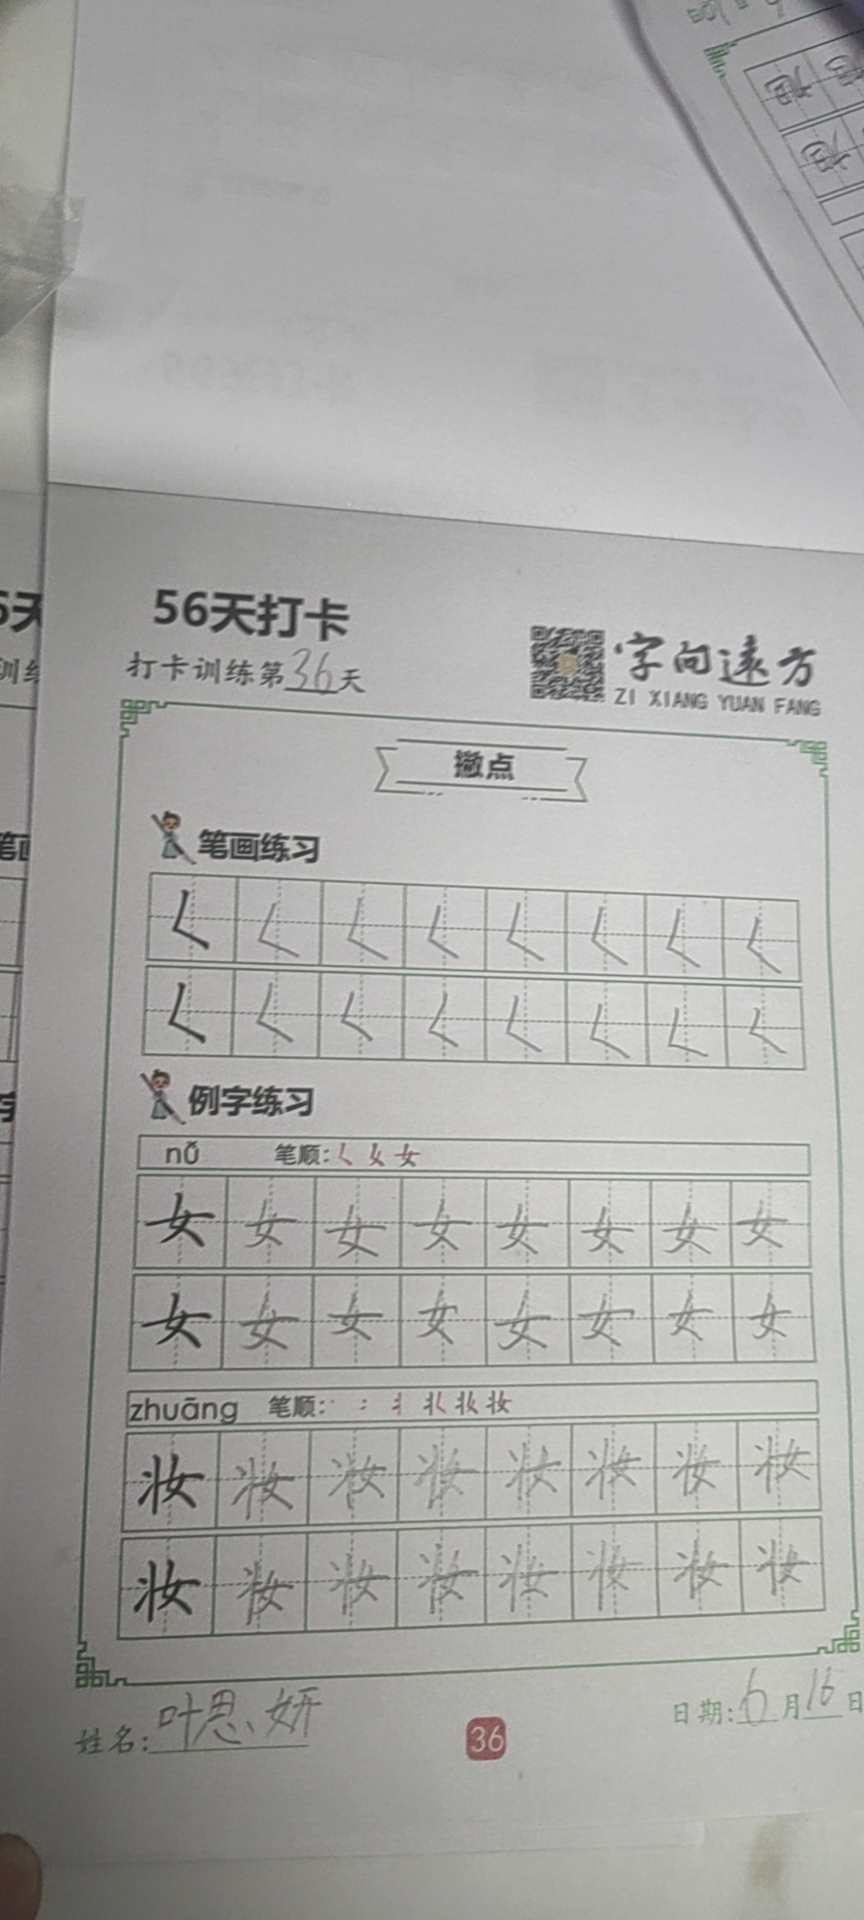 56天打卡
打卡训练第36天
字向远方
ZI XIANG YUAN FANG
撇点
笔画练习
𡿨 𡿨 𡿨 𡿨 𡿨 𡿨 𡿨 𡿨
𡿨 𡿨 𡿨 𡿨 𡿨 𡿨 𡿨 𡿨
例字练习
nǚ 笔顺:𡿨 女 女
女 女 女 女 女 女 女 女
女 女 女 女 女 女 女 女
zhuāng 笔顺: 妆
妆 妆 妆 妆 妆 妆 妆 妆
妆 妆 妆 妆 妆 妆 妆 妆
姓名:叶思妍
36
日期:6月16日